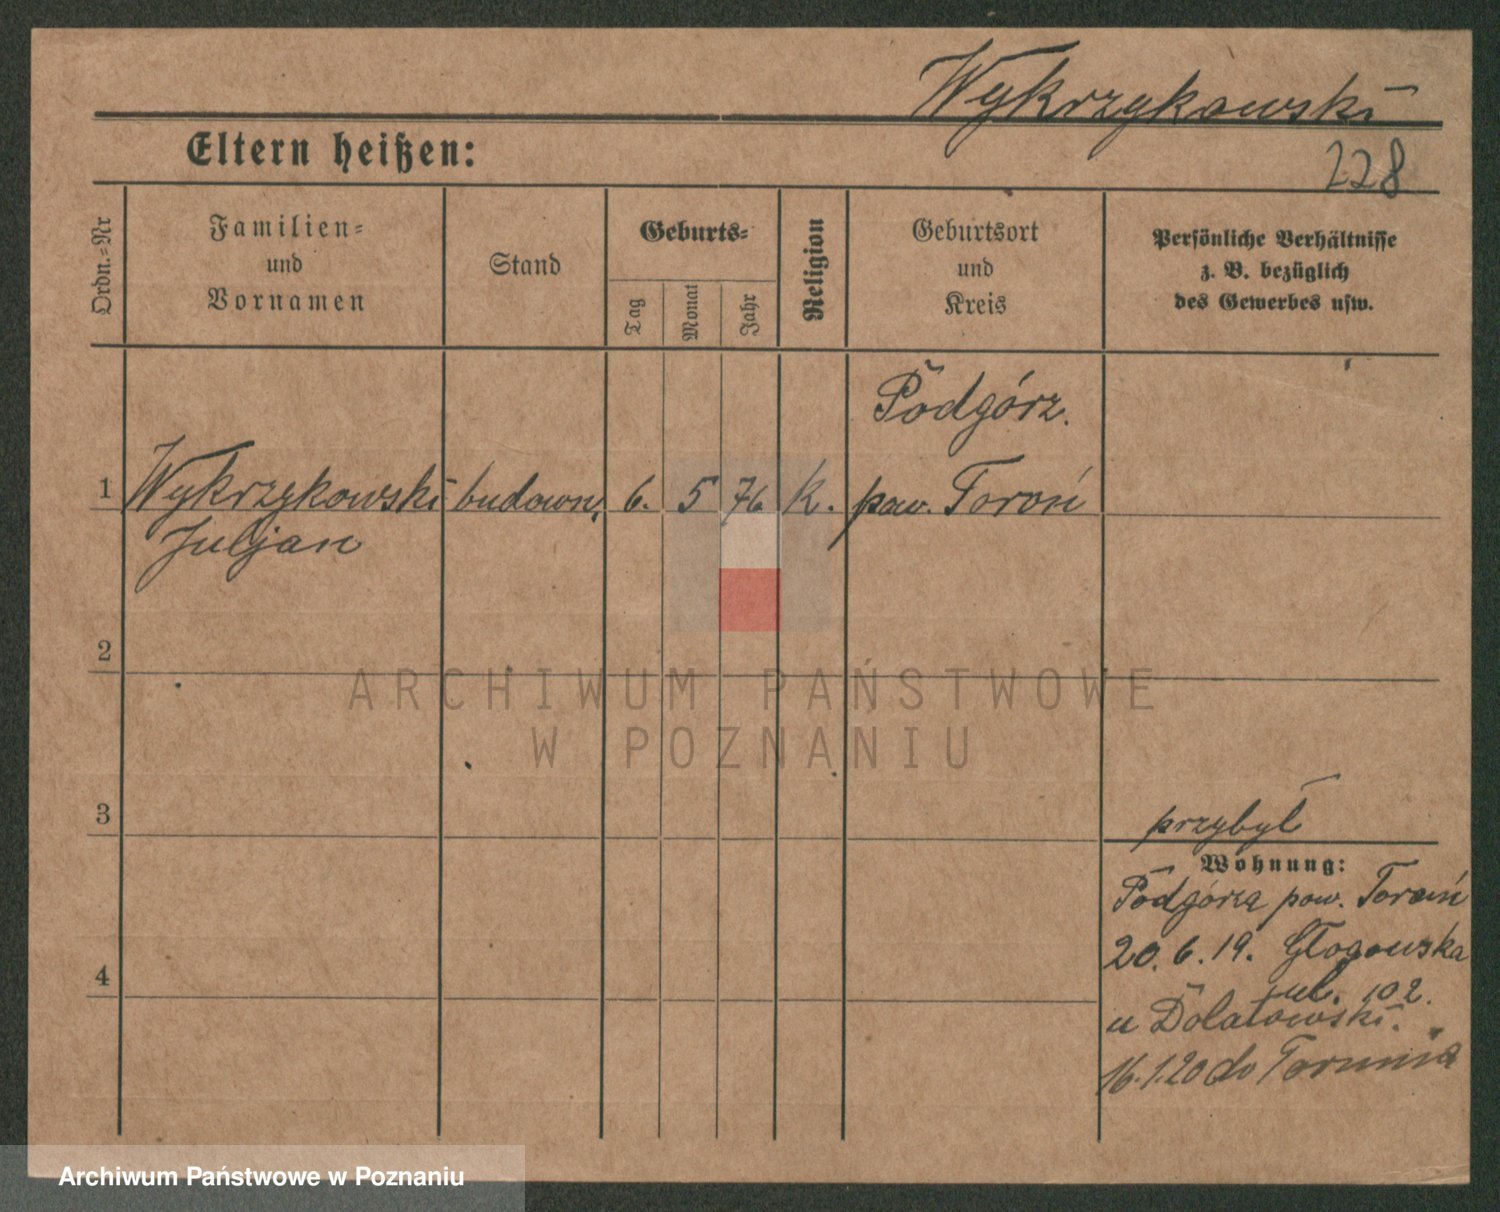 Wykrzykowski
Eltern heißen:
228
Ordn.-Nr
Familien-
und
Vornamen
Stand
Geburts-
Tag
Monat
Jahr
Religion
Geburtsort
und
Kreis
Persönliche Verhältnisse
z. B. bezüglich
des Gewerbes usw.
Podgórz.
1 Wykrzykowski budown. 6. 5 76 k. pow. Toroń
Juljan
2
ARCHIWUM PAŃSTWOWE
W POZNANIU
3
przybył
Wohnung:
Podgórza pow. Toruń
20. 6. 19. Głogowska
4
ul. 102.
u Dolatowski.
16.1.20 do Torunia
Archiwum Państwowe w Poznaniu